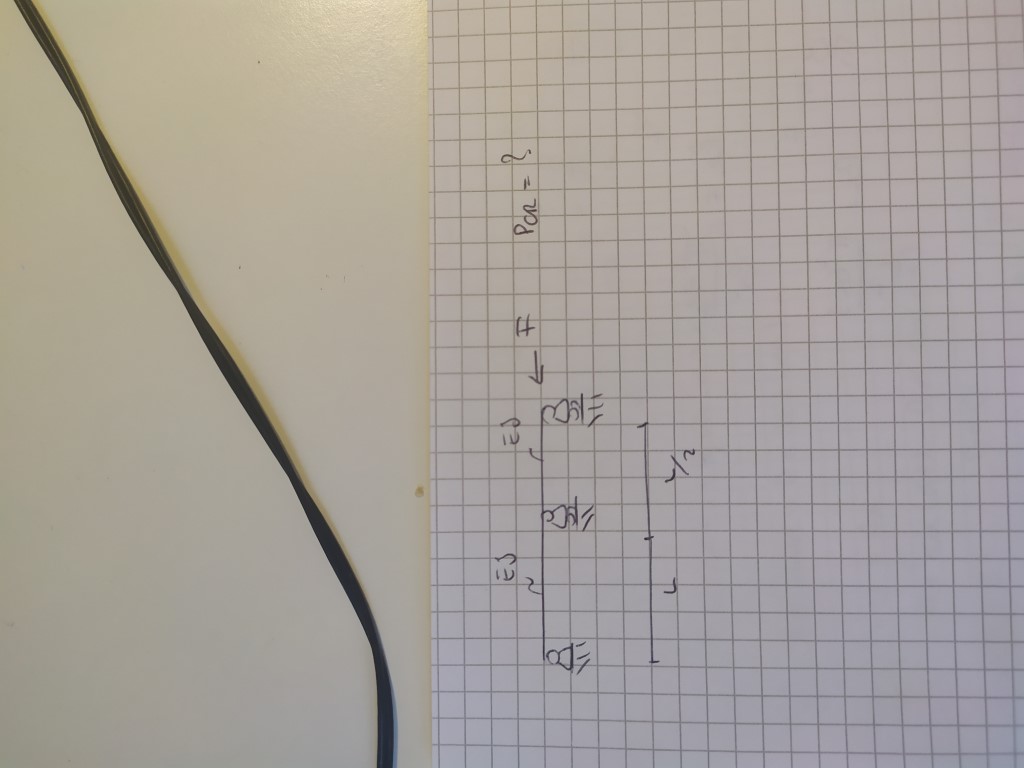 EJ EJ
F P_CR = ?
L L/2